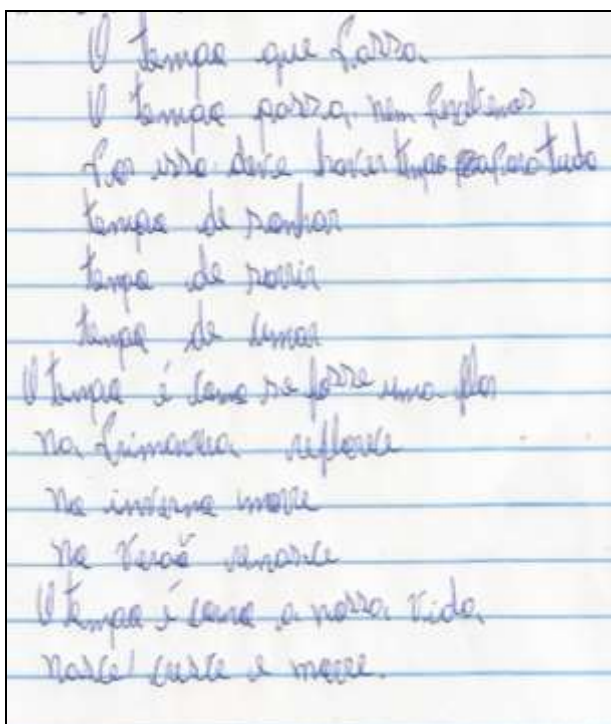 O tempo que passa
O tempo passa nem percebemos
Por isso deve haver tempo para tudo
tempo de sonhar
tempo de sorrir
tempo de amar
O tempo é como se fosse uma flor
na Primavera refloresce
no inverno morre
no Verão renasce
O tempo é como a nossa vida
nasce cresce e morre.